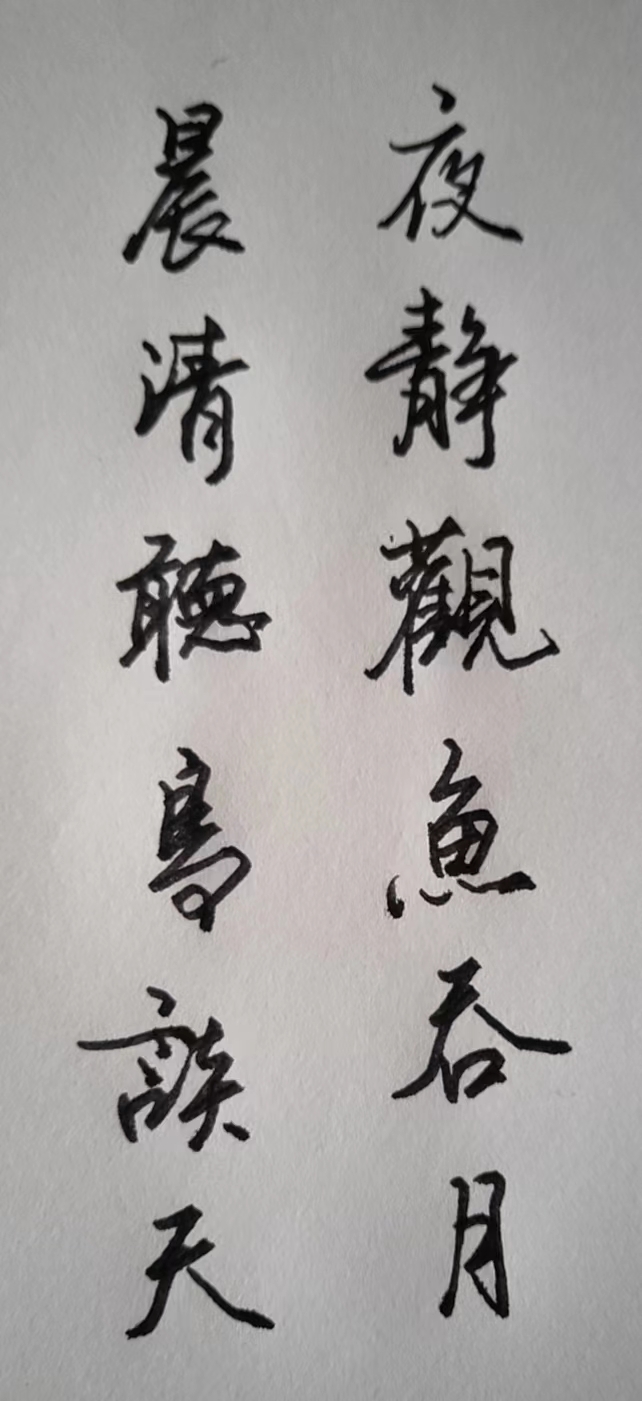 夜靜觀魚吞月
晨清聽鳥談天